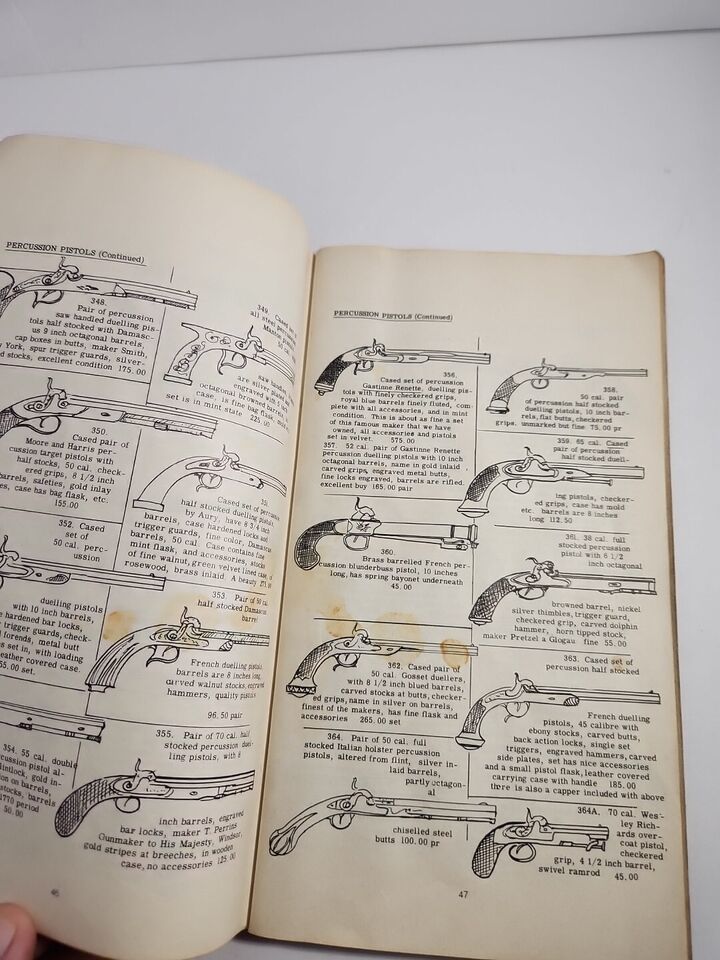 PERCUSSION PISTOLS (Continued)
348.
Pair of percussion
saw handled duelling pis-
tols half stocked with Damasc-
us 9 inch octagonal barrels,
cap boxes in butts, maker Smith,
York, spur trigger guards, silver-
stocks, excellent condition 175.00
349. Cased set of
all steel percussion
Manton
saw handled
are silver
engraved with
octagonal browned barrels
case, is fine bag flask,
set is in mint state 225.00
350.
Cased pair of
Moore and Harris per-
cussion target pistols with
half stocks, 50 cal. check-
ered grips, 8 1/2 inch
barrels, safeties, gold inlay
case has bag flask, etc.
155.00
Cased set of
half stocked duelling pistols,
by Aury, have 8 3/4 inch
barrels, case hardened locks and
trigger guards, fine color, Damascus
barrels, 50 cal. Case contains fine
mint flask and accessories, stocks
of fine walnut, green velvet lined case, of
rosewood, brass inlaid. A beauty
352. Cased
set of
50 cal. perc-
ussion
duelling pistols
with 10 inch barrels,
hardened bar locks,
trigger guards, check-
forends, metal butt
set in, with loading
leather covered case.
353. Pair of 50 cal.
half stocked Damascus
barrel
French duelling pistols,
barrels are 8 inches long,
carved walnut stocks, engraved
hammers, quality pistols
96.50 pair
354. 55 cal. double
355. Pair of 70 cal. half
stocked percussion duel-
ling pistols, with 8
inch barrels, engraved
bar locks, maker T. Perrins
Gunmaker to His Majesty, Windsor,
gold stripes at breeches, in wooden
case, no accessories 125.00
46
PERCUSSION PISTOLS (Continued)
356.
Cased set of percussion
Gastinne Renette, duelling pis-
tols with finely checkered grips,
royal blue barrels finely fluted, com-
plete with all accessories, and in mint
condition. This is about as fine a set
of this famous maker that we have
owned, all accessories and pistols
set in velvet. 575.00
357. 52 cal. pair of Gastinne Renette
percussion duelling pistols with 10 inch
octagonal barrels, name in gold inlaid
carved grips, engraved metal butts,
fine locks engraved, barrels are rifled.
excellent buy 165.00 pair
358.
50 cal. pair
of percussion half stocked
duelling pistols, 10 inch bar-
rels, flat butts, checkered
grips. unmarked but fine 75.00 pr
359. 65 cal. Cased
pair of percussion
half stocked duell-
ing pistols, checker-
ed grips, case has mold
etc. barrels are 8 inches
long 112.50
360.
Brass barrelled French per-
cussion blunderbuss pistol, 10 inches
long, has spring bayonet underneath
45.00
361. 38 cal. full
stocked percussion
pistol with 6 1/2
inch octagonal
browned barrel, nickel
silver thimbles, trigger guard,
checkered grip, carved dolphin
hammer, horn tipped stock,
maker Pretzel a Glogau fine 55.00
362. Cased pair of
50 cal. Gosset duellers,
with 8 1/2 inch blued barrels,
carved stocks at butts, checker-
ed grips, name in silver on barrels,
finest of the makers, has fine flask and
accessories 265.00 set
363. Cased set of
percussion half stocked
French duelling
pistols, 45 calibre with
ebony stocks, carved butts,
back action locks, single set
triggers, engraved hammers, carved
side plates, set has nice accessories
and a small pistol flask, leather covered
carrying case with handle 185.00
there is also a capper included with above
364. Pair of 50 cal. full
stocked Italian holster percussion
pistols, altered from flint, silver in-
laid barrels,
partly octagon-
al
chiselled steel
butts 100.00 pr
364A. 70 cal. Wes-
ley Rich-
ards over-
coat pistol,
checkered
grip, 4 1/2 inch barrel,
swivel ramrod 45.00
47